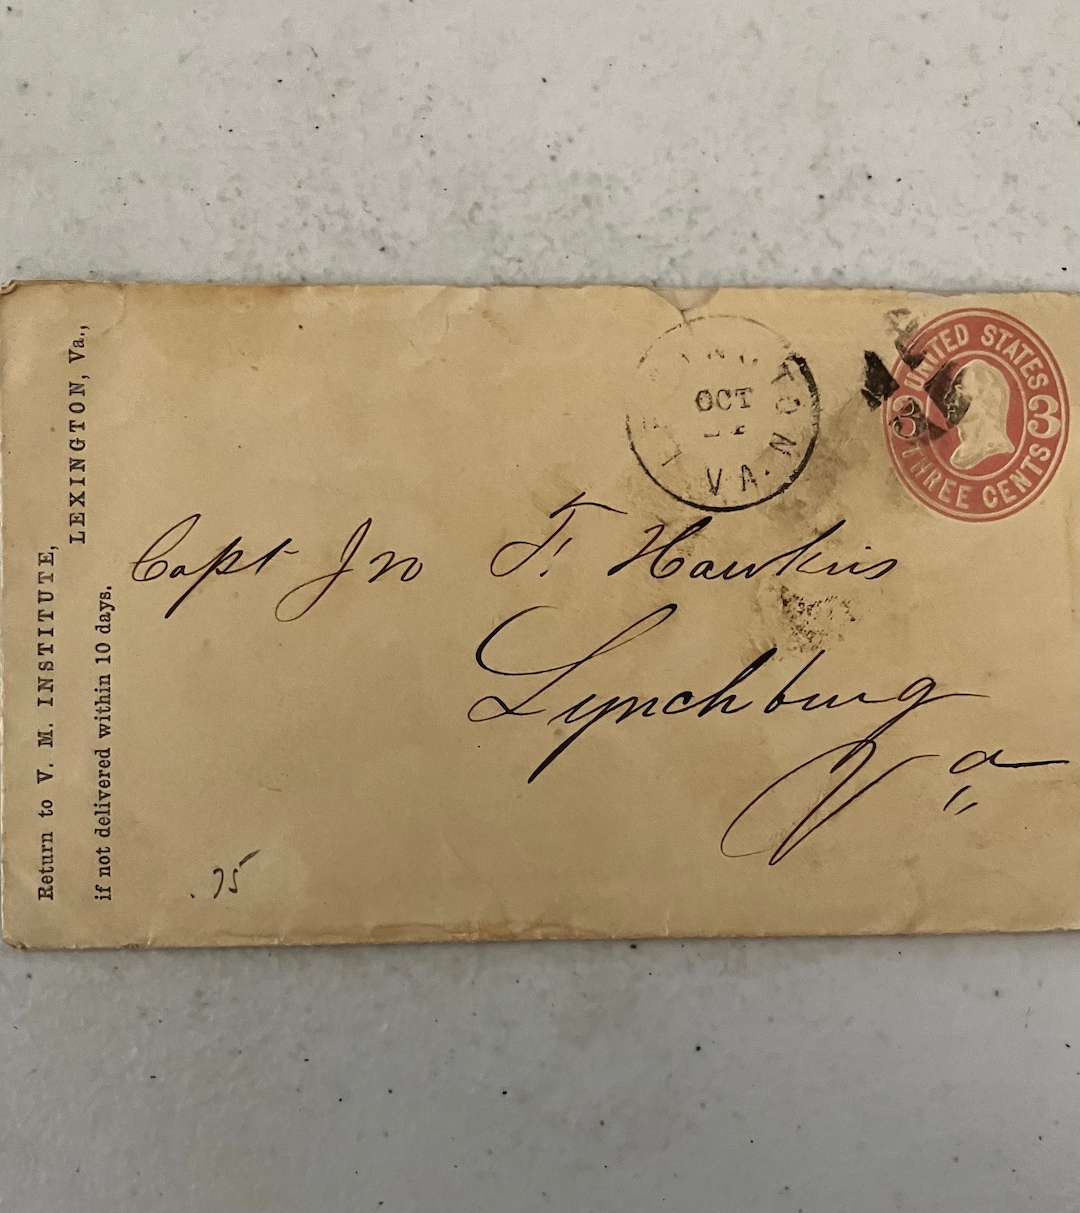 Return to V. M. INSTITUTE,
LEXINGTON, Va.,
if not delivered within 10 days.
OCT
VA.
UNITED STATES
3 3
THREE CENTS
Capt Jno F. Hawkins
Lynchburg
Va
.75